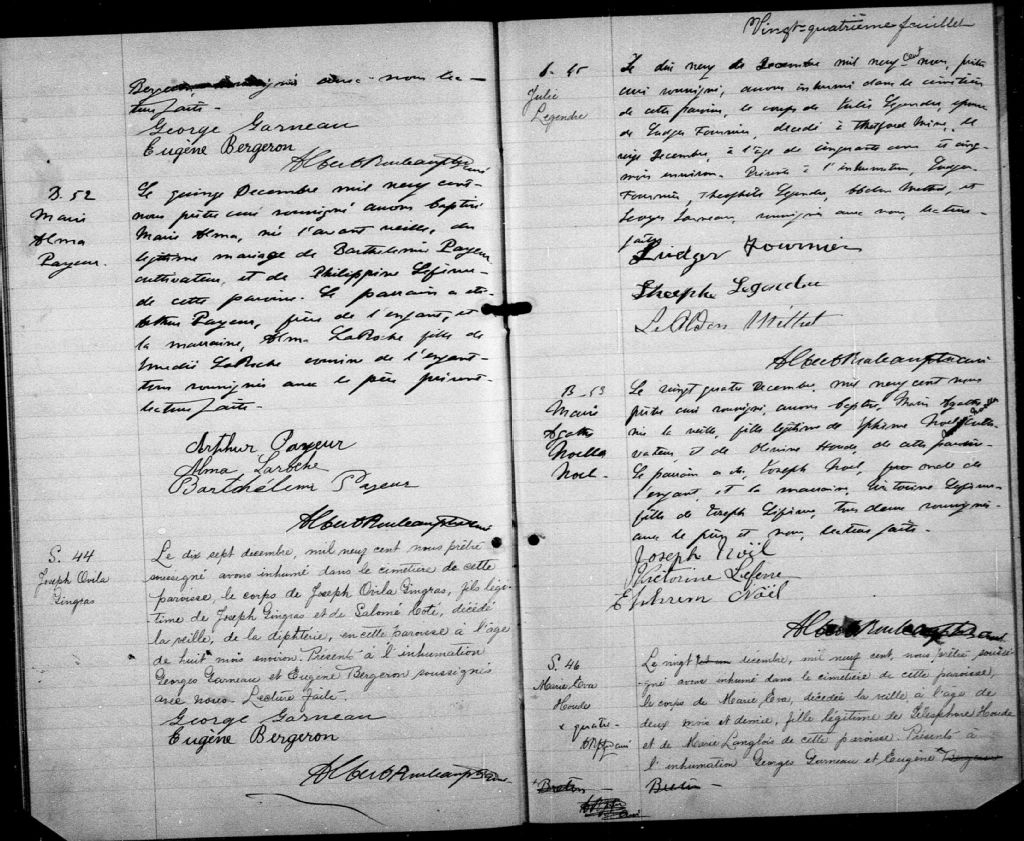 Bergeron, soussigné avec nous lec-
ture faite.
George Garneau
Eugène Bergeron
Albert Rouleau ptre curé
B. 52
Marie
Alma
Payeur.
Le quinze Decembre mil neuf cent
nous prêtre curé soussigné avons baptisé
Marie Alma, né l'avant veille, du
légitime mariage de Barthelemie Payeur
cultivateur, et de Philippine Lefebvre
de cette paroisse. Le parrain a été
Payeur, frère de l'enfant, et
la marraine, Alma LaRoche fille de
LaRoche cousine de l'enfant
tous soussignés avec le père présent
lecture faite.
Arthur Payeur
Alma Laroche
Barthélémi Payeur
Albert Rouleau ptre curé
S. 44
Joseph Ovila
Gingras
Le dix sept decembre, mil neuf cent nous prêtre
soussigné avons inhumé dans le cimetière de cette
paroisse, le corps de Joseph Ovila Gingras, fils légi-
time de Joseph Gingras et de Salomé Coté, décédé
la veille, de la dipthérie, en cette paroisse à l'âge
de huit mois environ. Présents à l'inhumation
Georges Garneau et Eugène Bergeron soussignés
avec nous. Lecture faite.
George Garneau
Eugène Bergeron
Albert Rouleau ptre curé
Vingt-quatrième feuillet
S. 45
Julie
Legendre
Le dix neuf de Decembre mil neuf cent nous, prêtre
curé soussigné, avons inhumé dans le cimetière
de cette paroisse, le corps de Julie Legendre, épouse
de Ludger Fournier, décédé à Thetford Mine, le
seize Decembre, à l'âge de cinquante ans et cinq
mois environ. Présents à l'inhumation, Ludger
Fournier, Théophile Legendre, et
Georges Garneau, soussignés avec nous, lecture
faite.
Ludger Fournier
Theophe Legendre
Albert Rouleau ptre curé
B. 53
Marie
Agathe
Noella
Noel.
Le vingt quatre Decembre, mil neuf cent nous
prêtre curé soussigné, avons baptisé, Marie Agathe
née la veille, fille légitime de Ephrem Noel culti-
vateur et de Olevine Houde, de cette paroisse
Le parrain a été Joseph Noel, oncle de
l'enfant, et la marraine, Victorine Lefebvre
fille de Joseph Lefebvre, tous deux soussignés
avec le père et nous, lecture faite.
Joseph Noël
Victorine Lefevre
Ephrem Noël
Albert Rouleau ptre curé
S. 46
Marie Eva
Houde
x quatre
curé
Le vingt decembre, mil neuf cent, nous prêtre soussi-
gné avons inhumé dans le cimetière de cette paroisse,
le corps de Marie Eva, décédée la veille à l'âge de
deux mois et demie, fille légitime de Télesphore Houde
et de Marie Langlois de cette paroisse. Présents à
l'inhumation Georges Garneau et Eugène Bergeron
+ Breton
Breton